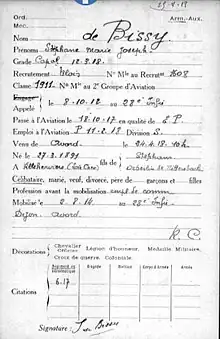 25-4-18
Ord. Arm. Aux.
Mec.
Nom de Bissy
Prénoms Stéphane Marie Joseph
Grade Capal 12.3.18.
Recrutement Blois N° Mle au Recrut 1608
Classe 1911 N° Mle au 2e Groupe d'Aviation
Engagé
Appelé le 8-10-12 au 28e Infie
Passé à l'Aviation le 18.10-17 en qualité de E P
Emploi à l'Aviation P 11-2.18 Division S.
Venu de Avord le 24.4-18
Né le 27.3.1891 Stéphane
A (Loir Cher) fils de
Célibataire, marié, veuf, divorcé, père de garçons et filles
Profession avant la mobilisation empl de comm.
Mobilisé le 2.8.14 au 28e Infie
Dijon Avord
R.C.
Décorations Chevalier Officier Légion d'honneur. Médaille Militaire.
Croix de guerre. Coloniale.
Citations Régiment ou Escadrille Brigade Division Corps d'Armée Armée
6-17
Signature : S de Bissy